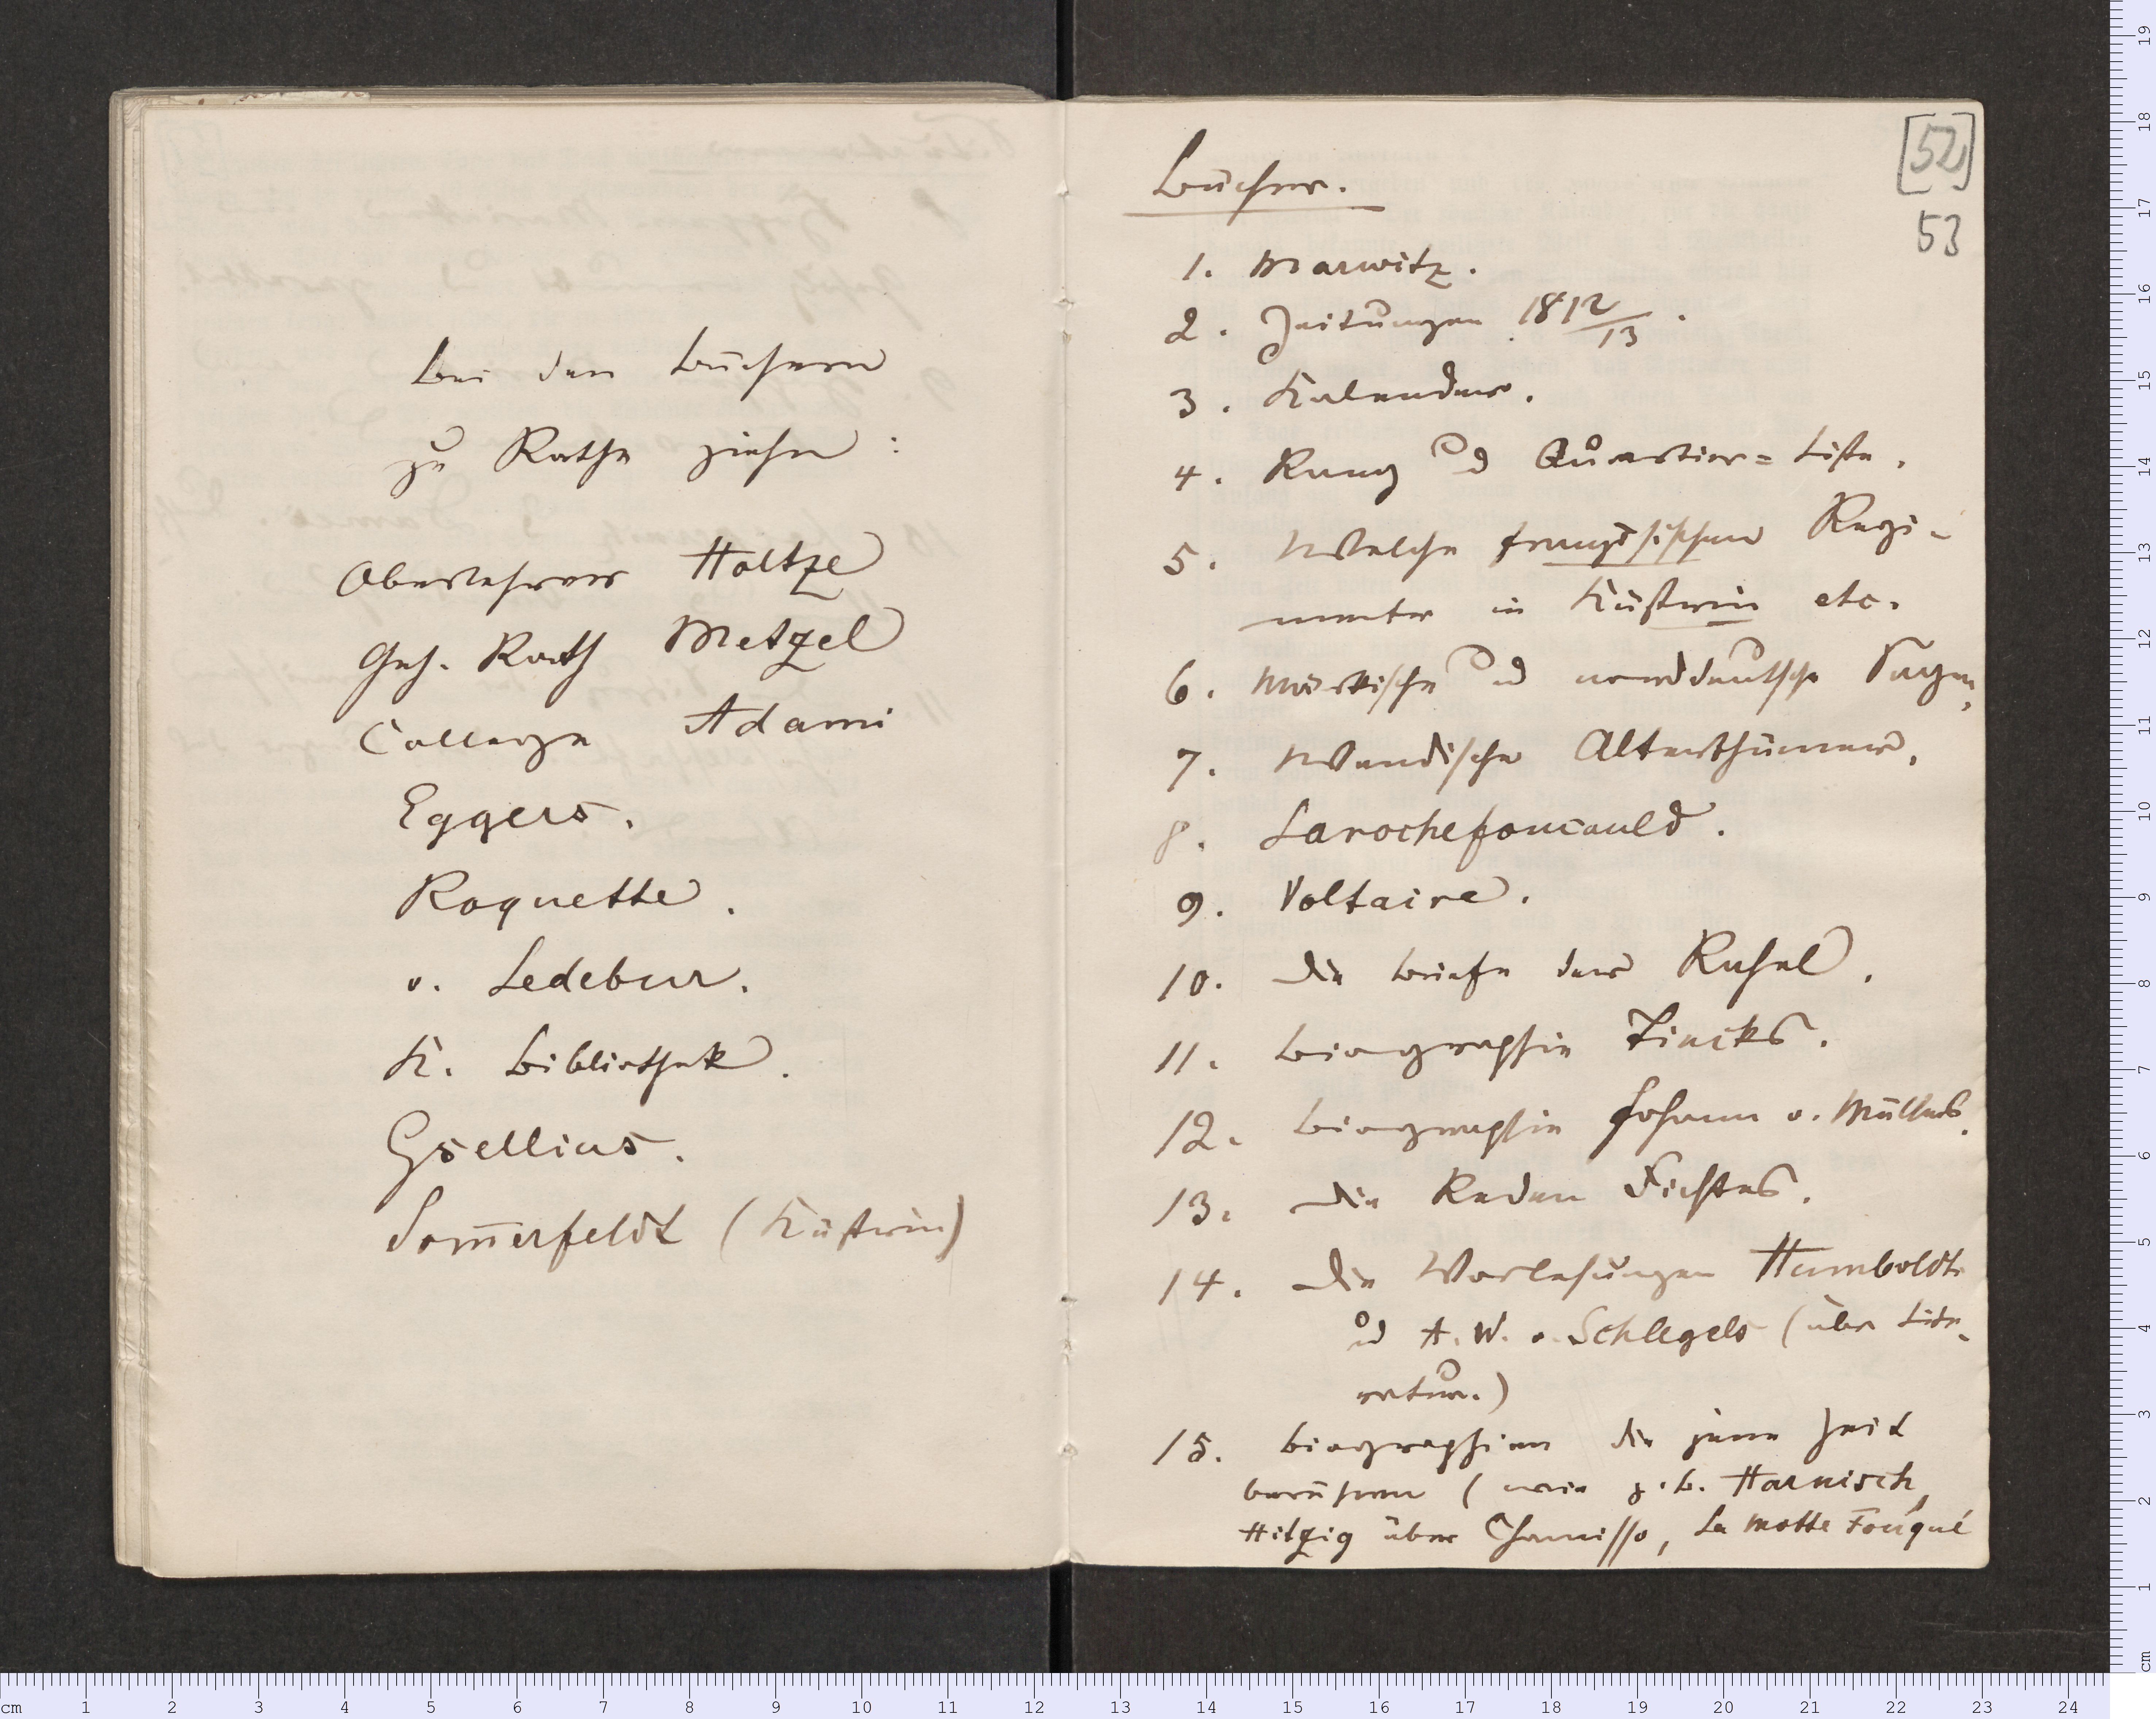 Bei den Büchern
zu Rathe ziehn:
Oberlehrer Holtze
Geh. Rath Metzel
College Adami
Eggers.
Roquette.
v. Ledebur.
K. Bibliothek.
Gsellius.
Som̅erfeldt (Küstrin)
[52]
53
Bücher.
1. Marwitz.
2. Zeitungen 1812/13.
3. Kalender.
4. Rang und Quartier=Liste.
5. Welche französischen Regi-
menter in Küstrin etc.
6. Märkische und norddeutsche Sagen.
7. Wendische Alterthümer.
8. Larochefoucauld.
9. Voltaire.
10. Die Briefe der Rahel.
11. Biographie Tiecks.
12. Biographie Johann v. Müllers.
13. Die Reden Fichtes.
14. Die Vorlesungen Humboldts
und A. W. v. Schlegels (über Lite-
ratur.)
15. Biographien die jene Zeit
berühren (wie z. B. Harnisch,
Hitzig über Chamisso, La Motte Fouqué